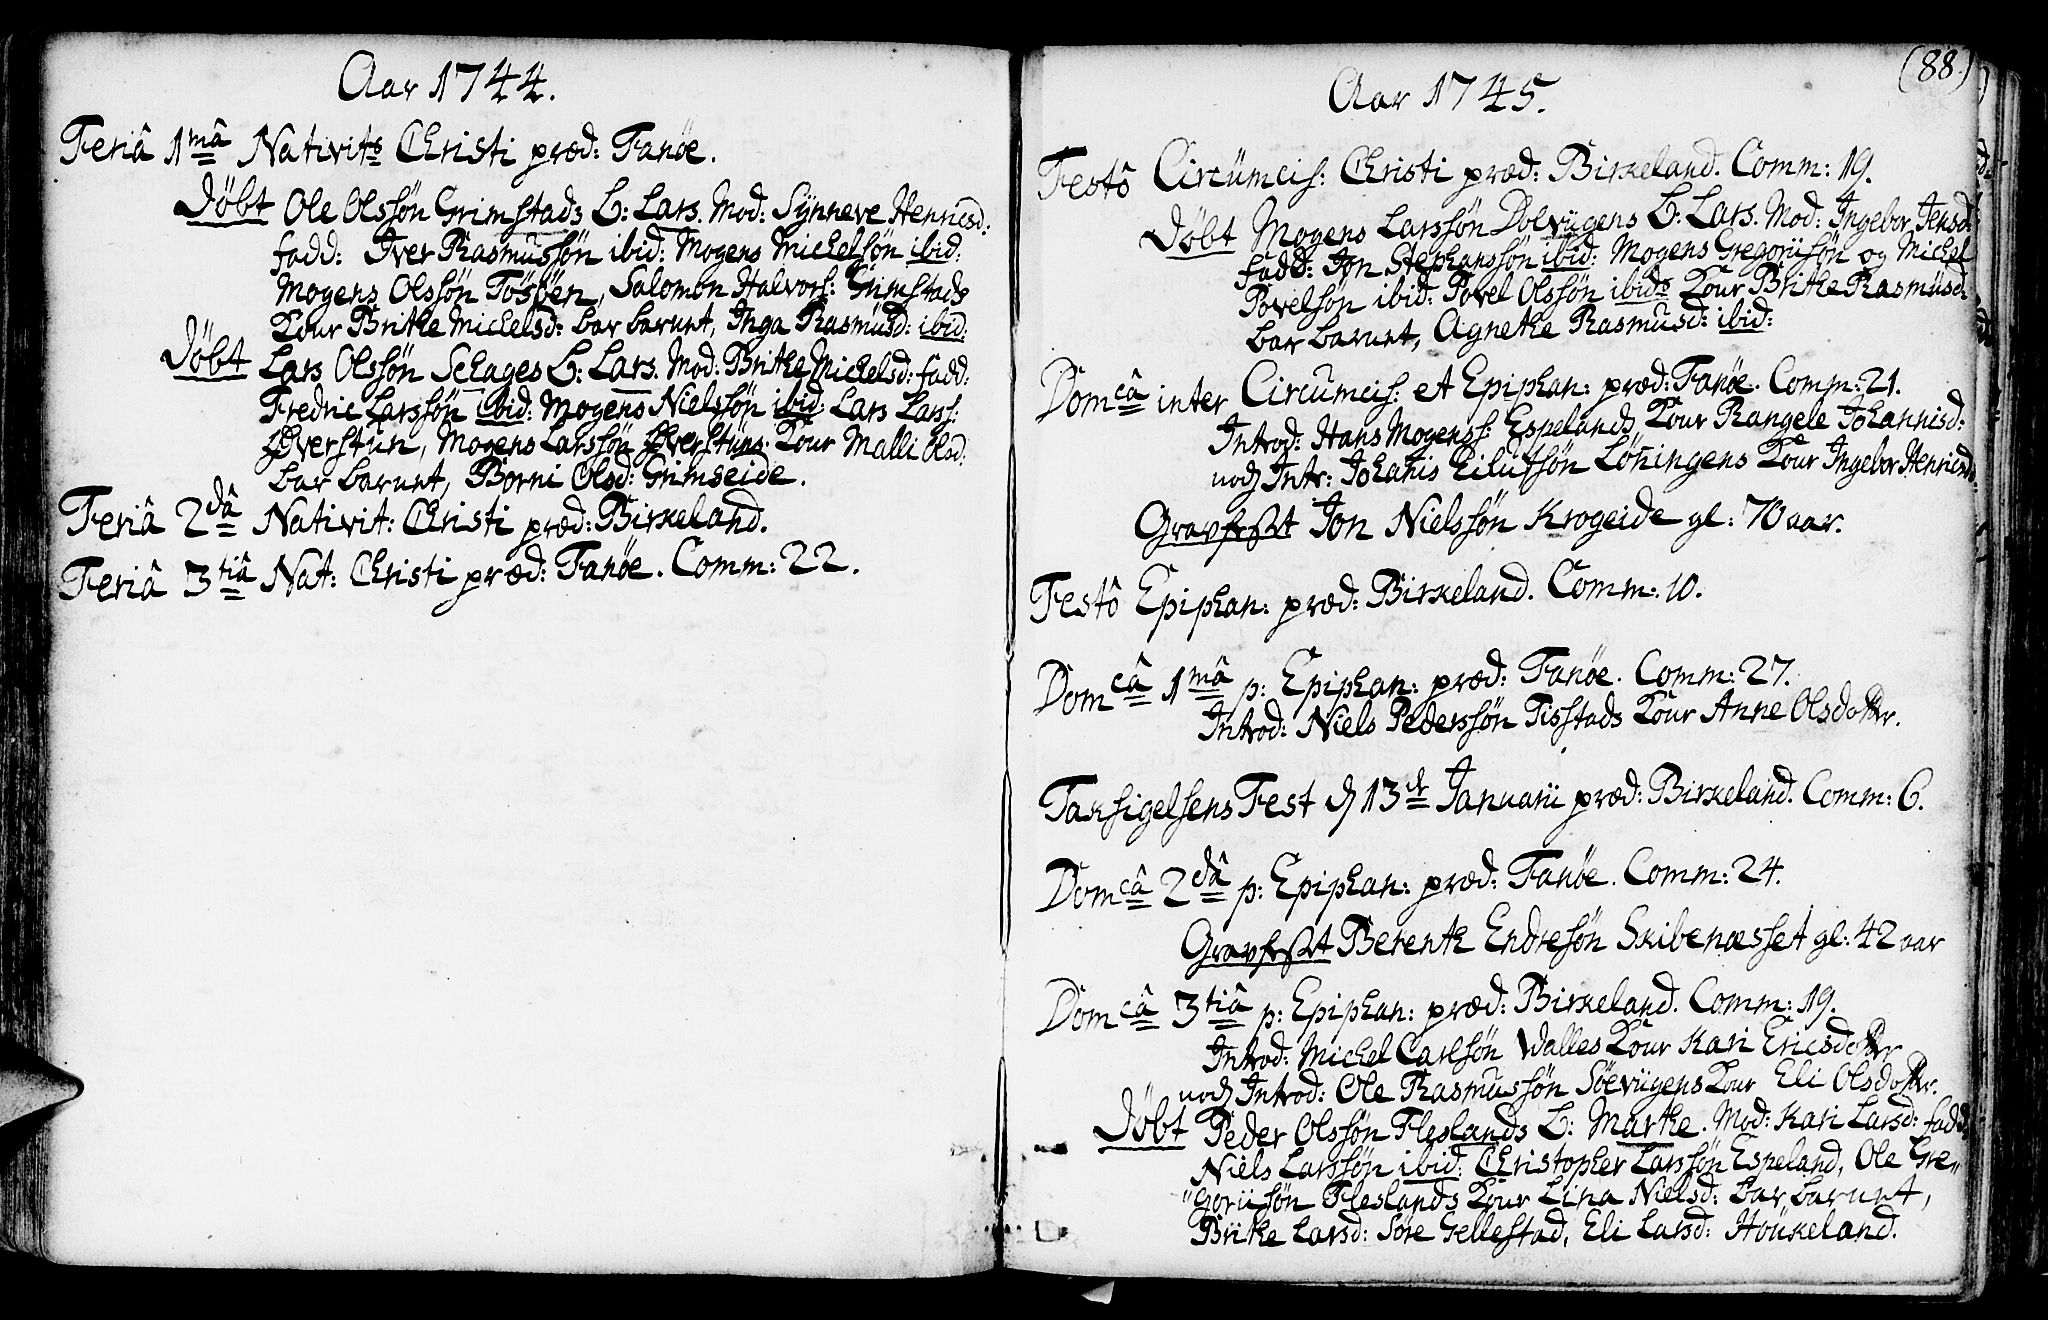 Aar 1744.
Feriâ 1mâ Nativits Christi præd: Fanøe.
Døbt Ole Olssøn Grimstads B: Lars. Mod: Synneve Henricsd:
fadd: Iver Rasmussøn ibid: Mogens Michelsøn ibid:
Mogens Olssøn Tøsøen, Salomon Halvors: Grimstads
Kour Brithe Michelsd: bar barnet, Inga Rasmusd: ibid:
Døbt Lars Olssøn Schages B: Lars. Mod: Brithe Michelsd: fadd:
Fredric Larssøn ibid: Mogens Nielssøn ibid: Lars Larss:
Øverstun, Mogens Larssøn Øverstuns Kour Malli Olsd:
bar barnet, Borni Olsd: Grimseide.
Feriâ 2dâ Nativit: Christi præd: Birkeland.
Feriâ 3tiâ Nat: Christi præd: Fanøe. Comm: 22.
(88)
Aar 1745.
Festô Circumcis: Christi præd: Birkeland. Comm: 19.
Døbt Mogens Larssøn Dolvigens B: Lars. Mod: Ingebor Jensd:
fadd: Jon Stephanssøn ibid: Mogens Gregoriisøn og Michel
Povelsøn ibid: Povel Olssøn ibids Kour Brithe Rasmusd:
bar barnet, Agnethe Rasmusd: ibid:
Domcâ inter Circumcis: et Epiphan: præd: Fanøe. Comm: 21.
Introd: Hans Mogenss: Espelands Kour Rangele Johannisd:
nock Intr: Johanis Eilufsøn Løningens Kour Ingebor Henricsd:
Gravfest Jon Nielssøn Krogeide gl: 70 aar.
Festô Epiphan: præd: Birkeland. Comm: 10.
Domcâ 1mâ p: Epiphan: præd: Fanøe. Comm: 27.
Introd: Niels Pederssøn Tisstads Kour Anne Olsdotter.
Taksigelsens Fest d 13de Januarii præd: Birkeland. Comm: 6.
Domcâ 2dâ p: Epiphan: præd: Fanøe. Comm: 24.
Gravfest Berenth Endresøn Skibenæsset gl: 42 aar
Domcâ 3tiâ p: Epiphan: præd: Birkeland. Comm: 19.
Introd: Michel Carlsøn Walles Kour Kari Ericsdotter
nock Introd: Ole Rasmussøn Søevigens Kour Eli Olsdotter.
Døbt Peder Olssøn Fleslands B: Marthe. Mod: Kari Larsd: fadd:
Niels Larssøn ibid: Christopher Larssøn Espeland, Ole Gre„
„goriisøn Fleslands Kour Lina Nielsd: bar barnet,
Brithe Larsd: Søre Gellestad, Eli Larsd: Houkeland.